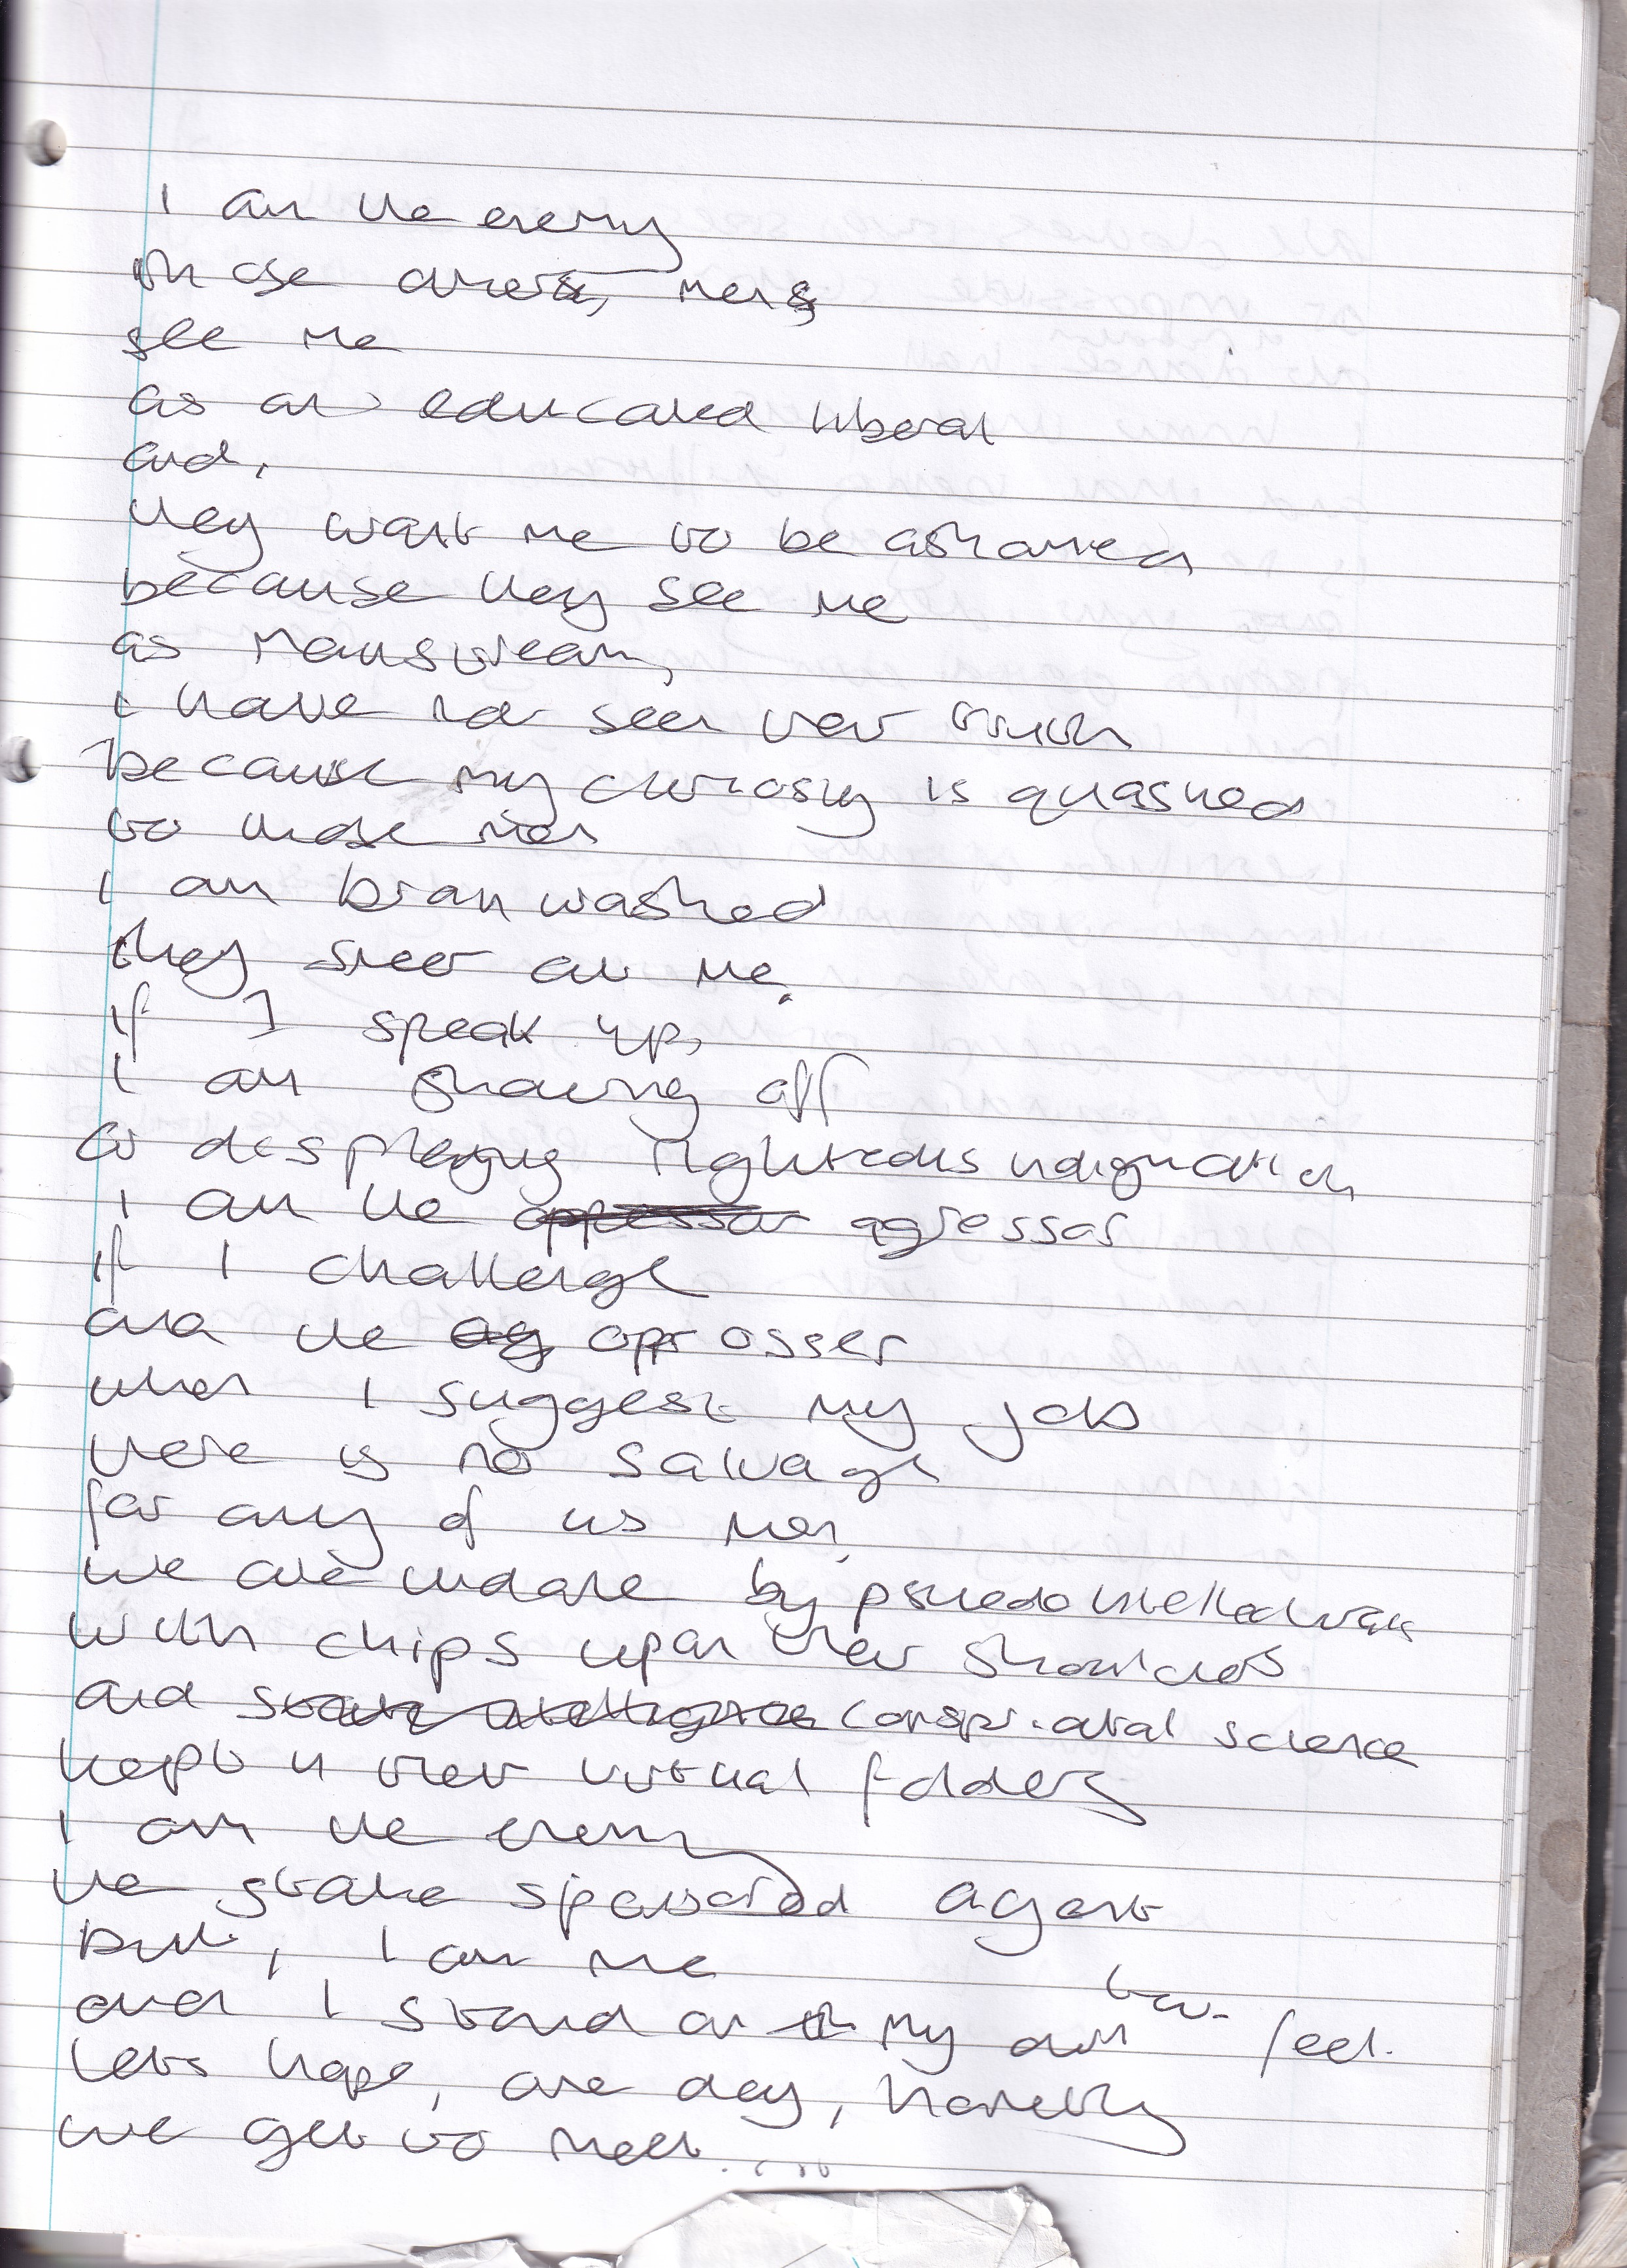 I am the enemy
those others, men,
see me
as an educated liberal
and,
they want me to be ashamed
because they see me
as mainstream,
I have not seen their truth
because my curiosity is quashed
to those men
I am brainwashed
they sneer at me.
If I speak up,
I am showing off
or displaying righteous indignation
I am the oppressor agressor
if I challenge
and the ag opprosser
when I suggest my
there is no salvage
for any of us men.
we are undone by psuedo intellectuals
with chips upon their shoulders
and state intelligence conspiratal science
kept in their virtual folders
I am the enemy
the state sponsored agent
but, I am me
and I stand on th my own two feet.
lets hope, one day, honestly
we get to meet.....